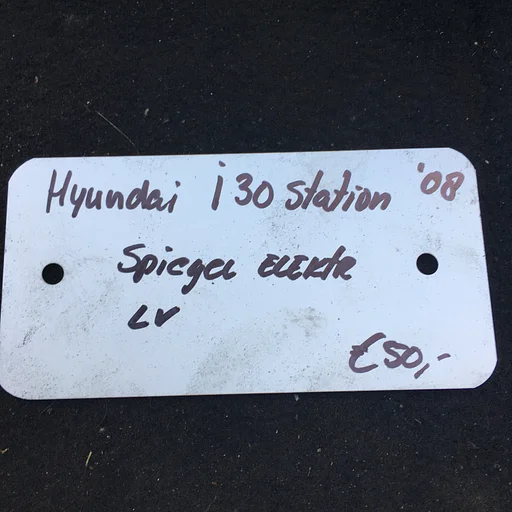 Hyundai i 30 Station '08
Spiegel ELEKtR
LV
€50,-